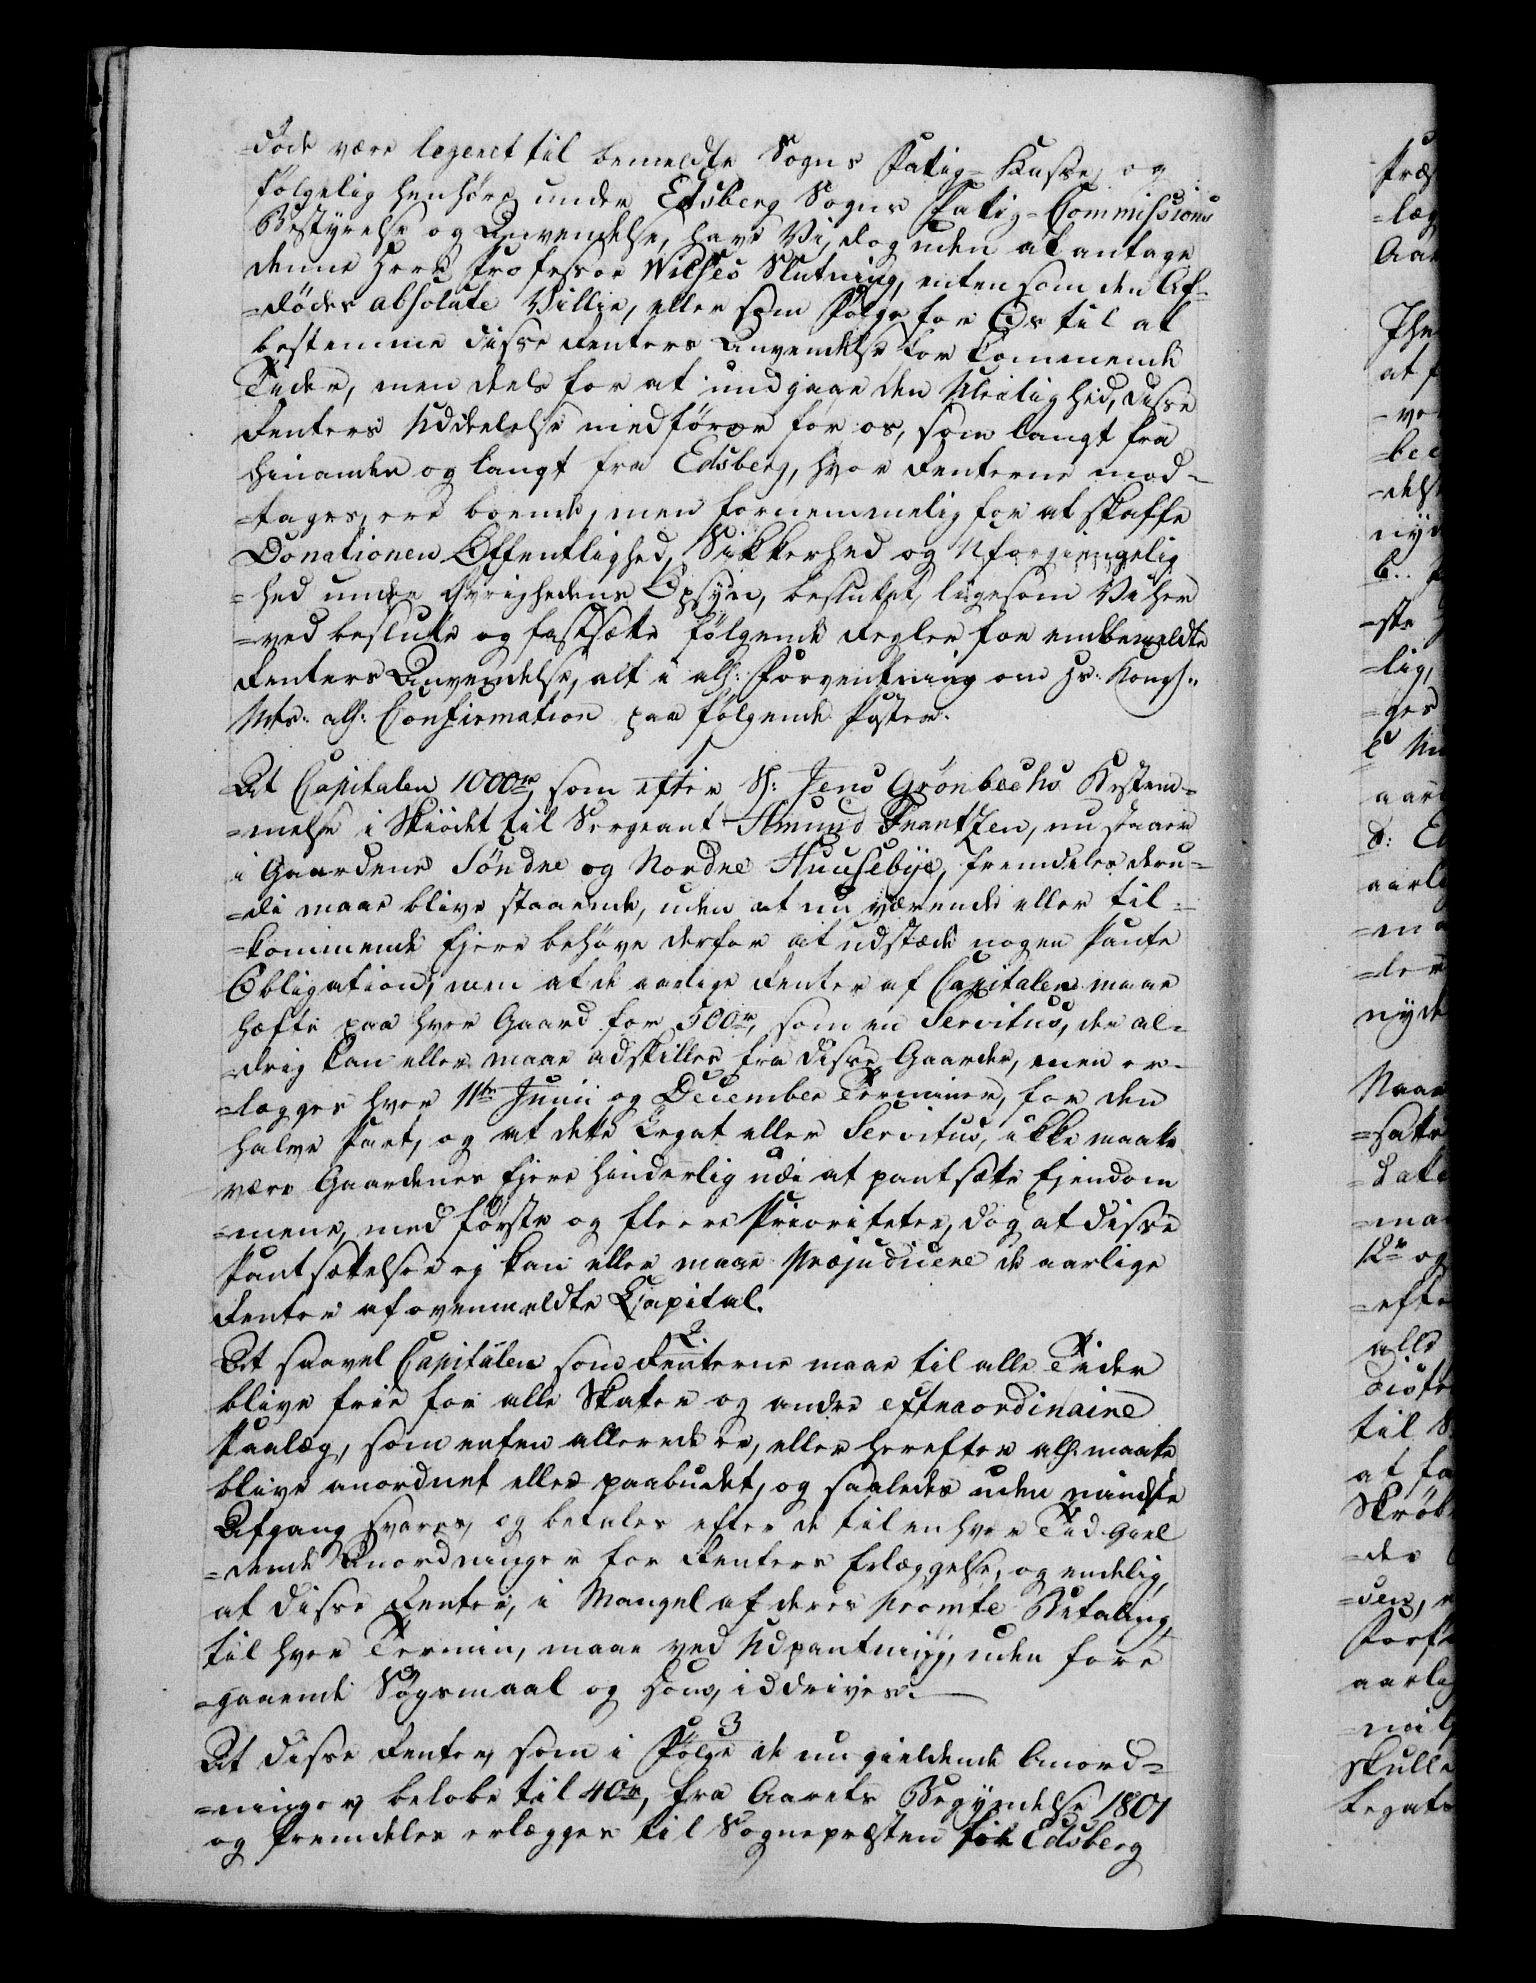 døde være legeret til bemeldte Sogns Fatig-Kasse, og
følgelig henhøre under Edsberg Sogns Fatig-Commissions
Bestyrelse og Anvendelse, have Vi, dog uden at antage
denne Herr Professor Wilses Slutning, enten som den Af-
=dødes absolute Villie, eller som Følge for Os til at
bestemme disse Renters Anvendelse for kommende
Tider, men deels for at undgaae den Uleilighed, disse
Renters Uddeelelse medfører for os, som langt fra
hinanden og langt fra Edsberg, hvor Renterne mod-
=tages, ere boende, men fornemmelig for at skaffe
Donationen Offentlighed, Sikkerhed og Uforgiengelig
=hed under Øvrighedens Opsyn, besluttet, ligesom Vi her
=ved beslutte og fastsætte følgende Regler for embemeldte
Renters Anvendelse, alt i alh: Forventning om Hs: Kongl:
Mts: alh: Confirmation paa følgende Poster.
1
At Capitalen 1000 rd, som efter S: Jens Grønbechs Bestem-
=melse i Skiødet til Sergeant Amund Frantzen, nu staaer
i Gaardene Søndre og Nordre Huusebye, fremdeles deru-
=di maae blive staaende, uden at nu værende eller til-
=kommende Ejere behøve derfor at udstæde nogen Pante
Obligation, men at de aarlige Renter af Capitalen maae
hæfte paa hver Gaard for 500 rd, som en Servitus, der al-
=drig kan eller maae adskilles fra disse Gaarder, men er-
=lægges hver 11te Junii og December Terminer, for den
halve Part, og at dette Legat eller Servitus, ikke maatte
være Gaardenes Ejere hinderlig udi at pantsætte Ejendom
=mene, med første og fleere Prioriteter, dog at disse
Pantsættelser ej kan eller maae præjudicere de aarlige
Renter af ovenmeldte Capital.
2
At saavel Capitalen som Renterne maae til alle Tider
blive frie for alle Skatter og andre extraordinaire
Paalæg, som enten allerede er, eller herefter alh. maatte
blive anordnet eller paabudet, og saaledes uden mindste
Afgang svares, og betales efter de til enhver Tid giel
=dende Anordninger for Renters Erlæggelse, og endelig,
at disse Renter, i Mangel af deres promte Betaling,
til hver Termin, maae ved Udpantning, uden fore
=gaaende Søgsmaal og Dom, inddrives.
3
At disse Renter, som i Følge de nu gieldende Anord-
=ninger, beløbe til 40 rd, fra Aarets Begyndelse 1801
og fremdeles erlægges til Sognepræsten for Edsberg